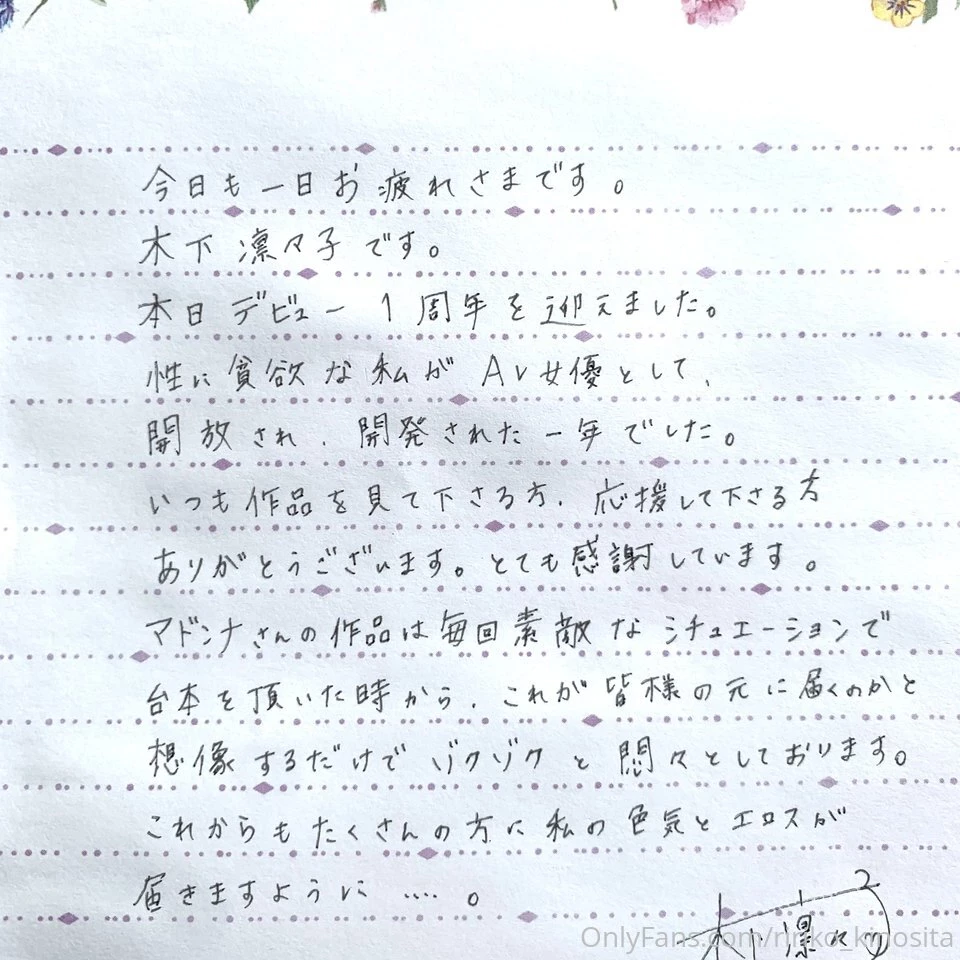 今日も一日お疲れさまです。
木下凛々子です。
本日デビュー1周年を迎えました。
性に貪欲な私がAV女優として、
開放され、開発された一年でした。
いつも作品を見て下さる方、応援して下さる方
ありがとうございます。とても感謝しています。
マドンナさんの作品は毎回素敵なシチュエーションで
台本を頂いた時から、これが皆様の元に届くのかと
想像するだけでゾクゾクと悶々としております。
これからもたくさんの方に私の色気とエロスが
届きますように….。
木下凛々子
OnlyFans.com/rinko_kinosita